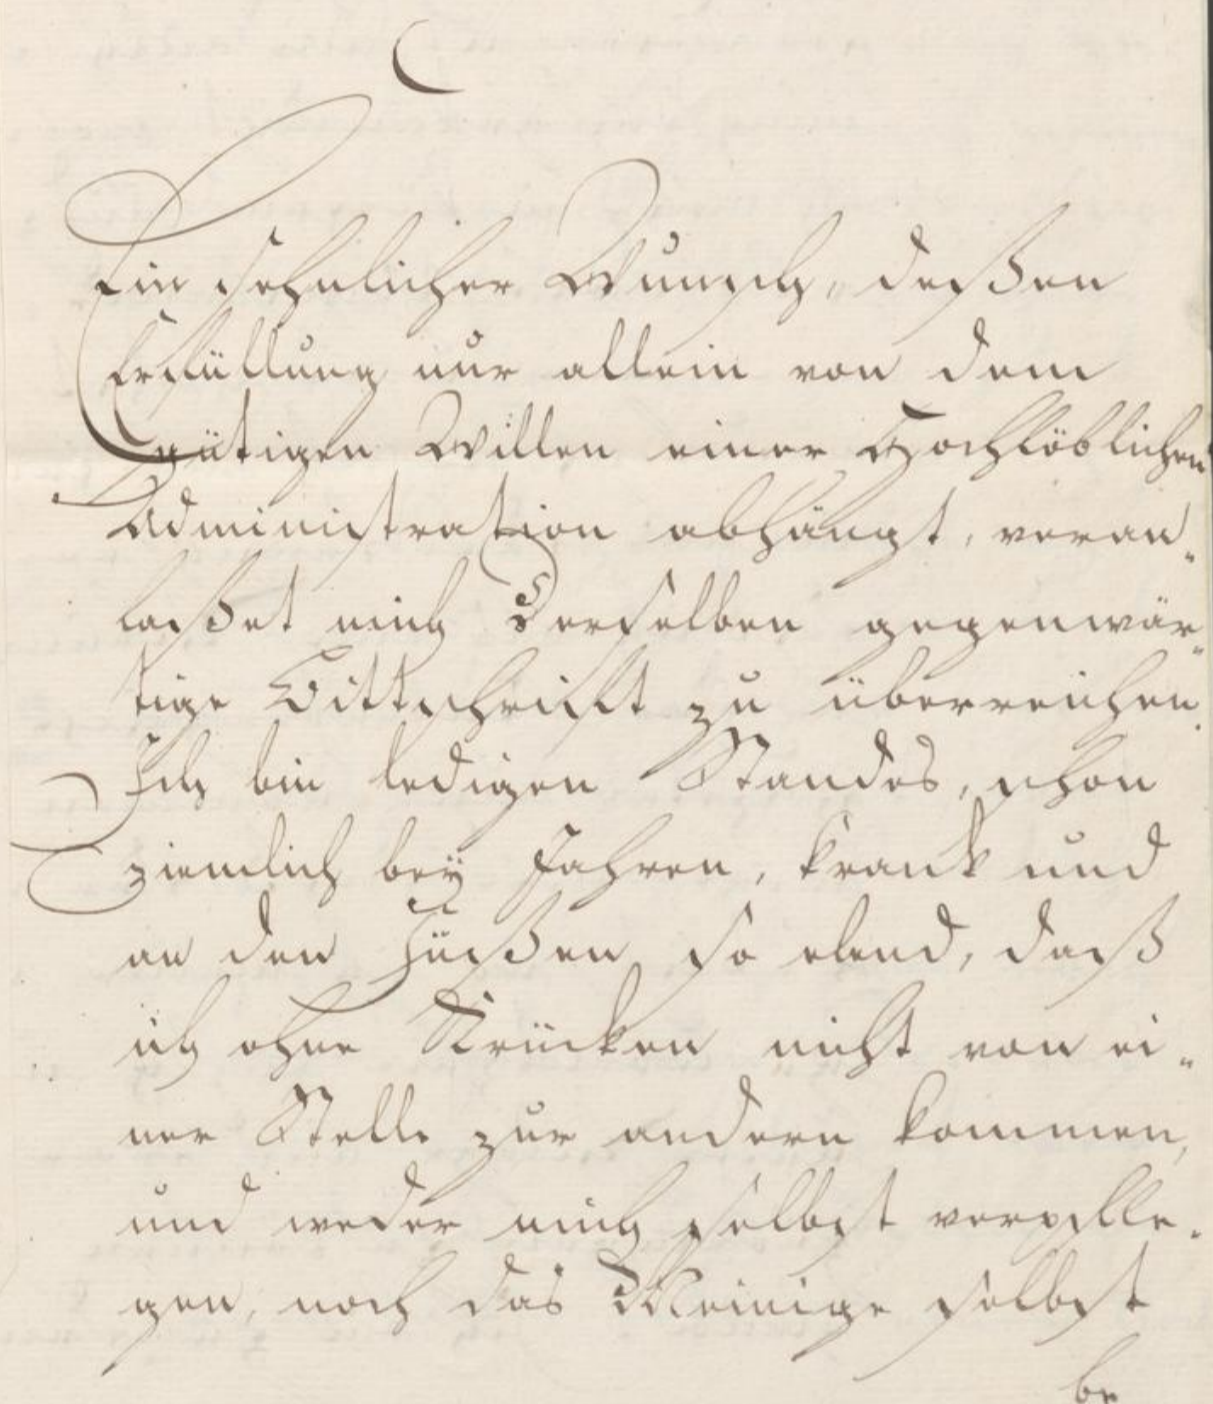 Ein sehnlicher Wunsch, deßen
Erfüllung nur allein von dem
gütigen Willen einer Hochlöblichen
Administration abhängt, veran„
laßet mich Derselben gegenwär„
tige Bittschrifft zu überreichen.
Ich bin ledigen Standes, schon
ziemlich beÿ Jahren, krank und
an den Füßen so elend, daß
ich ohne Krücken nicht von ei„
ner Stelle zur andern kommen,
und weder mich selbst verpfle„
gen, noch das Meinige selbst
be